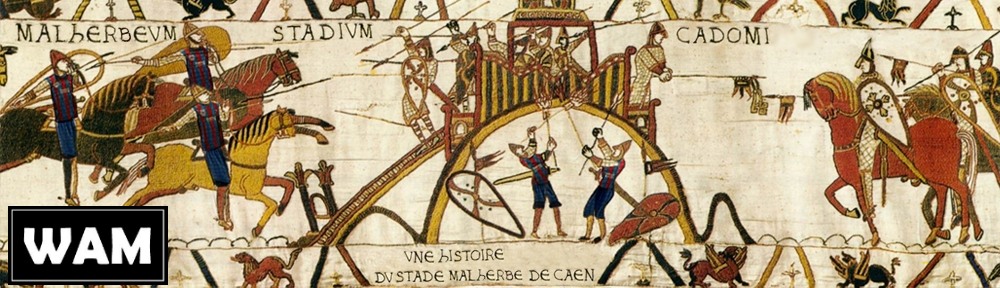 MALHERBEVM STADIVM CADOMI
VNE HISTOIRE
DV STADE MALHERBE DE CAEN
WAM